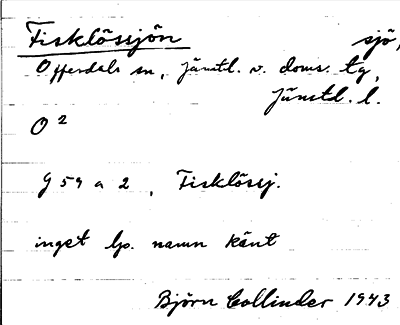 Fisklössjön sjö,
Offerdals sn, Jämtl. v. doms. tg,
Jämtl. l.
O 2
G 59 a 2, Fisklössj.
inget lp. namn känt
Björn Collinder 1943